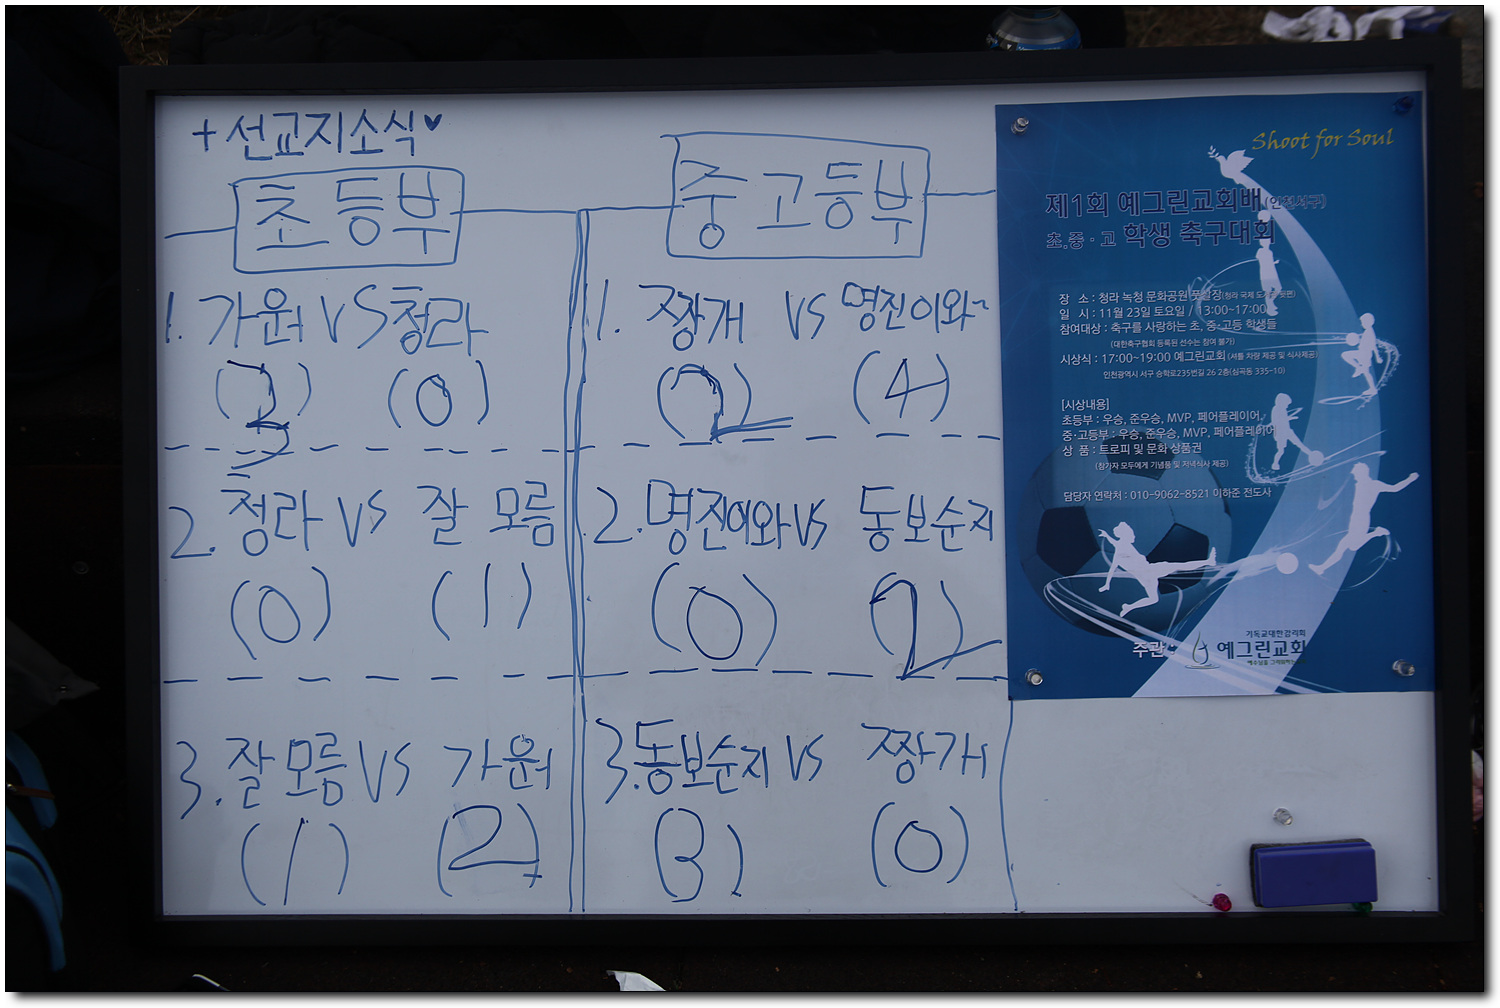 + 선교지소식♥
초등부
1. 가원 VS 청라
( ) (0)
2. 청라 VS 잘 모름
(0) (1)
3. 잘모름 VS 가원
(1) (2)
중고등부
1. 짱개 VS 명진이와~
(2) (4)
2. 명진이와 VS 동보순지
(0) (2)
3. 동보순지 VS 짱개
(3) (0)
Shoot for Soul
제1회 예그린교회배(인천서구)
초.중·고 학생 축구대회
장 소 : 청라 녹청 문화공원 풋살장(청라 국제
일 시 : 11월 23일 토요일 / 13:00~17:00
참여대상 : 축구를 사랑하는 초, 중·고등 학생들
(대한축구협회 등록된 선수는 참여 불가)
시상식 : 17:00~19:00 예그린교회 (셔틀 차량 제공 및 식사제공)
인천광역시 서구 승학로235번길 26 2층(심곡동 335-10)
[시상내용]
초등부 : 우승, 준우승, MVP, 페어플레이어,
중·고등부 : 우승, 준우승, MVP, 페어플레이어
상 품 : 트로피 및 문화 상품권
(참가자 모두에게 기념품 및 저녁식사 제공)
담당자 연락처 : 010-9062-8521 이하준 전도사
기독교대한감리회
주관 예그린교회